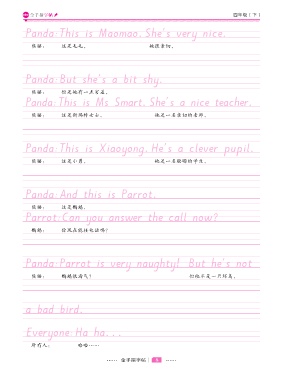 四年级（下）
Panda: This is Maomao. She's very nice.
熊猫： 这是毛毛。 她很亲切。
Panda: But she's a bit shy.
熊猫： 但是她有一点害羞。
Panda: This is Ms Smart. She's a nice teacher.
熊猫： 这是斯玛特女士。 她是一名亲切的老师。
Panda: This is Xiaoyong. He's a clever pupil.
熊猫： 这是小勇。 他是一名聪明的学生。
Panda: And this is Parrot.
熊猫： 这是鹦鹉。
Parrot: Can you answer the call now?
鹦鹉： 你现在能接电话吗？
Panda: Parrot is very naughty! But he's not
熊猫： 鹦鹉很淘气！ 但他不是一只坏鸟。
a bad bird.
Everyone: Ha ha...
所有人： 哈哈……